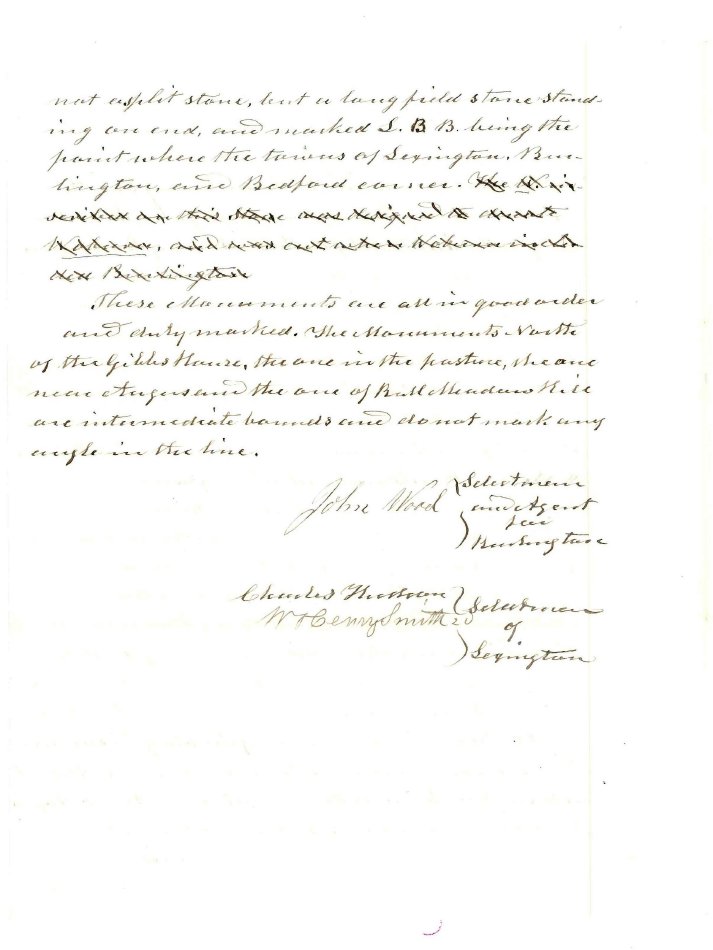 not a split stone, but a long field stone stand-
ing on end, and marked L. B B. being the
point where the towns of Lexington, Bur-
lington, and Bedford corner. The W. in-
on this stone was designed to
, and was cut when Woburn inclu
ded Burlington
These Monuments are all in good order
and duly marked. The Monuments North
of the Gibbs House, the one in the pasture, the one
near and the one of Bull Meadow Hill
are intermediate bounds and do not mark any
angle in the line.
John Wood
Selectmen
and Agent
for
Burlington
Charles Hudson
Wm Henry Smith 2d
Selectmen
of
Lexington